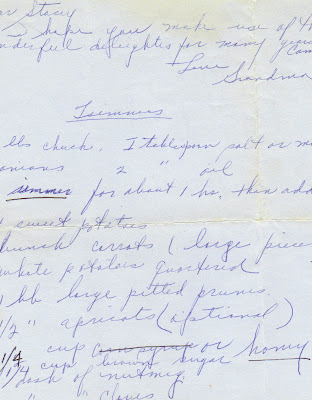 ar Stacy
I hope you make use of th
nderful delights for many years
Com
Love
Grandma
Tsimmes
lbs chuck. 1 tablespoon salt or mo
onions 2 " oil
simmer for about 1 hr. then add
" sweet potatoes
bunch carrots 1 large piece
white potatoes quartered
1 lb large pitted prunes.
1/2 " apricots (optional)
1/4 cup corn syrup or honey
1/4 cup brown sugar
dash of nutmeg.
" " Cloves